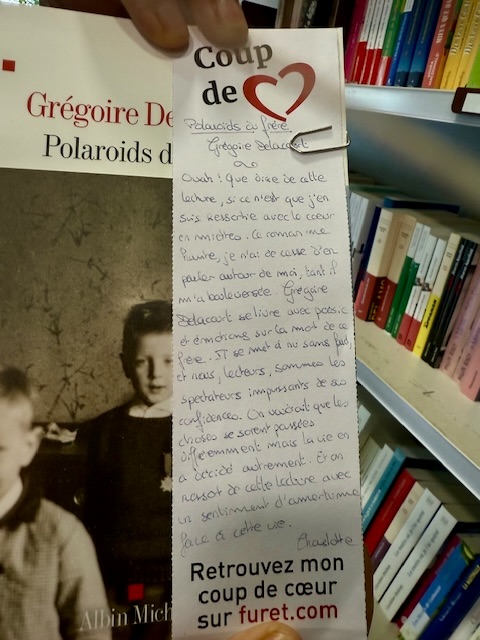 Grégoire De
Polaroids d
Coup
de
Polaroïds du frère
Grégoire Delacourt
Ouah ! Que dire de cette
lecture, si ce n'est que j'en
suis ressortie avec le cœur
en miettes. Ce roman me
hante, je n'ai de cesse d'en
parler autour de moi, tant il
m'a bouleversée. Grégoire
Delacourt se livre avec poésie
et émotions sur la mort de ce
frère. Il se met à nu sans fard,
et nous, lecteurs, sommes les
spectateurs impuissants de ses
confidences. On voudrait que les
choses se soient passées
différemment mais la vie en
a décidé autrement. Et on
ressort de cette lecture avec
un sentiment d'amertume
face à cette vie.
Charlotte
Retrouvez mon
coup de cœur
sur furet.com
Albin Mich